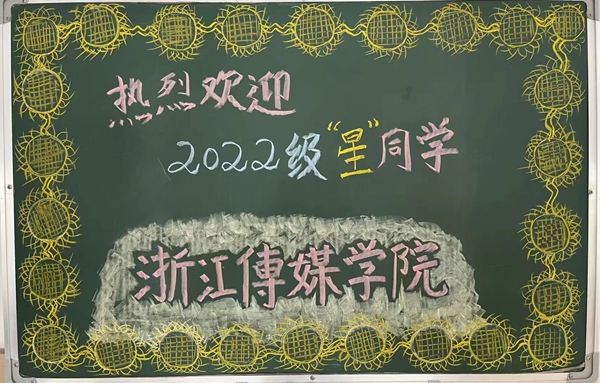 热烈欢迎
2022级“星”同学
浙江傳媒学院